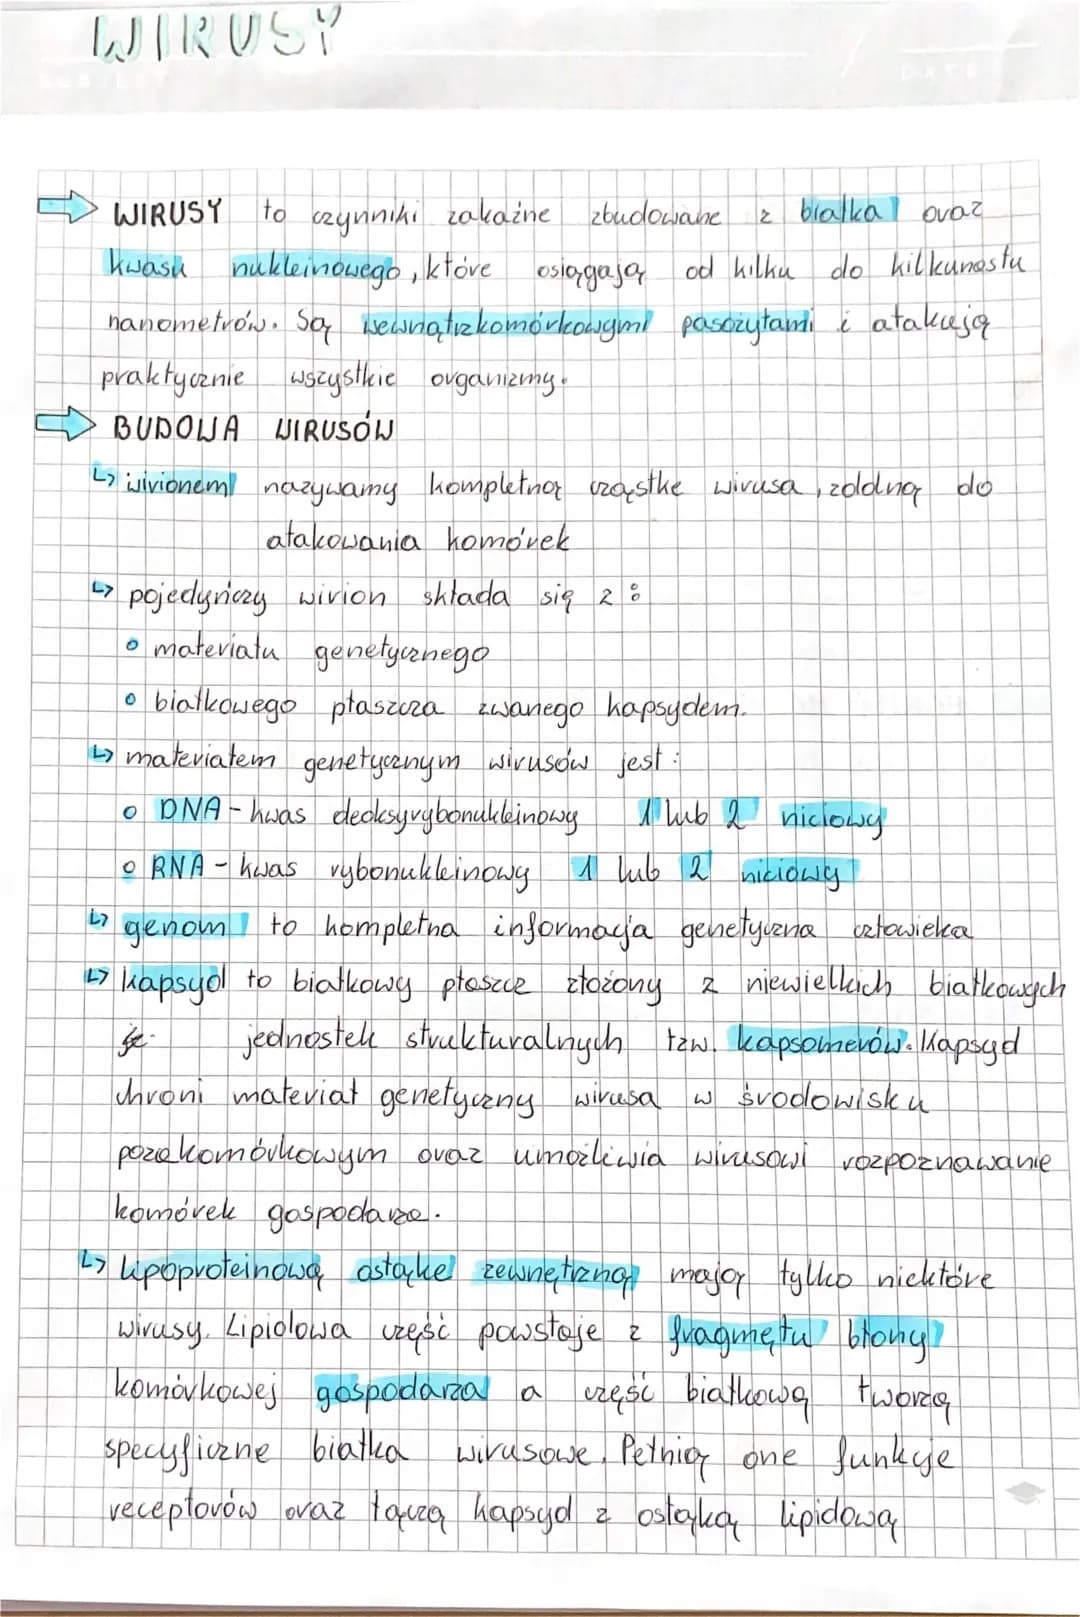 WIRUSY
SUBJECT
DATE
WIRUSY to czynniki zakaźne zbudowane z białka oraz
kwasu nukleinowego, które osiągają od kilku do kilkunastu
nanometrów. Są wewnątrzkomórkowymi pasożytami i atakują
praktycznie wszystkie organizmy.
BUDOWA WIRUSÓW
↳ wirionem nazywamy kompletną cząstkę wirusa, zdolną do
atakowania komórek
↳ pojedyńczy wirion składa się z:
o materiału genetycznego
o białkowego płaszcza zwanego kapsydem.
↳ materiałem genetycznym wirusów jest:
o DNA - kwas deoksyrybonukleinowy 1 lub 2 niciowy
o RNA - kwas rybonukleinowy 1 lub 2 niciowy
↳ genom to kompletna informacja genetyczna człowieka
↳ kapsyd to białkowy płaszcz złożony z niewielkich białkowych
jednostek strukturalnych tzw. kapsomerów. Kapsyd
chroni materiał genetyczny wirusa w środowisku
pozakomórkowym oraz umożliwia wirusowi rozpoznawanie
komórek gospodarza.
↳ Lipoproteinową osłąkę zewnętrzną mają tylko niektóre
wirusy. Lipidowa część powstaje z fragmętu błony
komórkowej gospodarza a część białkową tworzą
specyficzne białka wirusowe. Pełnią one funkcje
receptorów oraz łączą kapsyd z osłąką lipidową